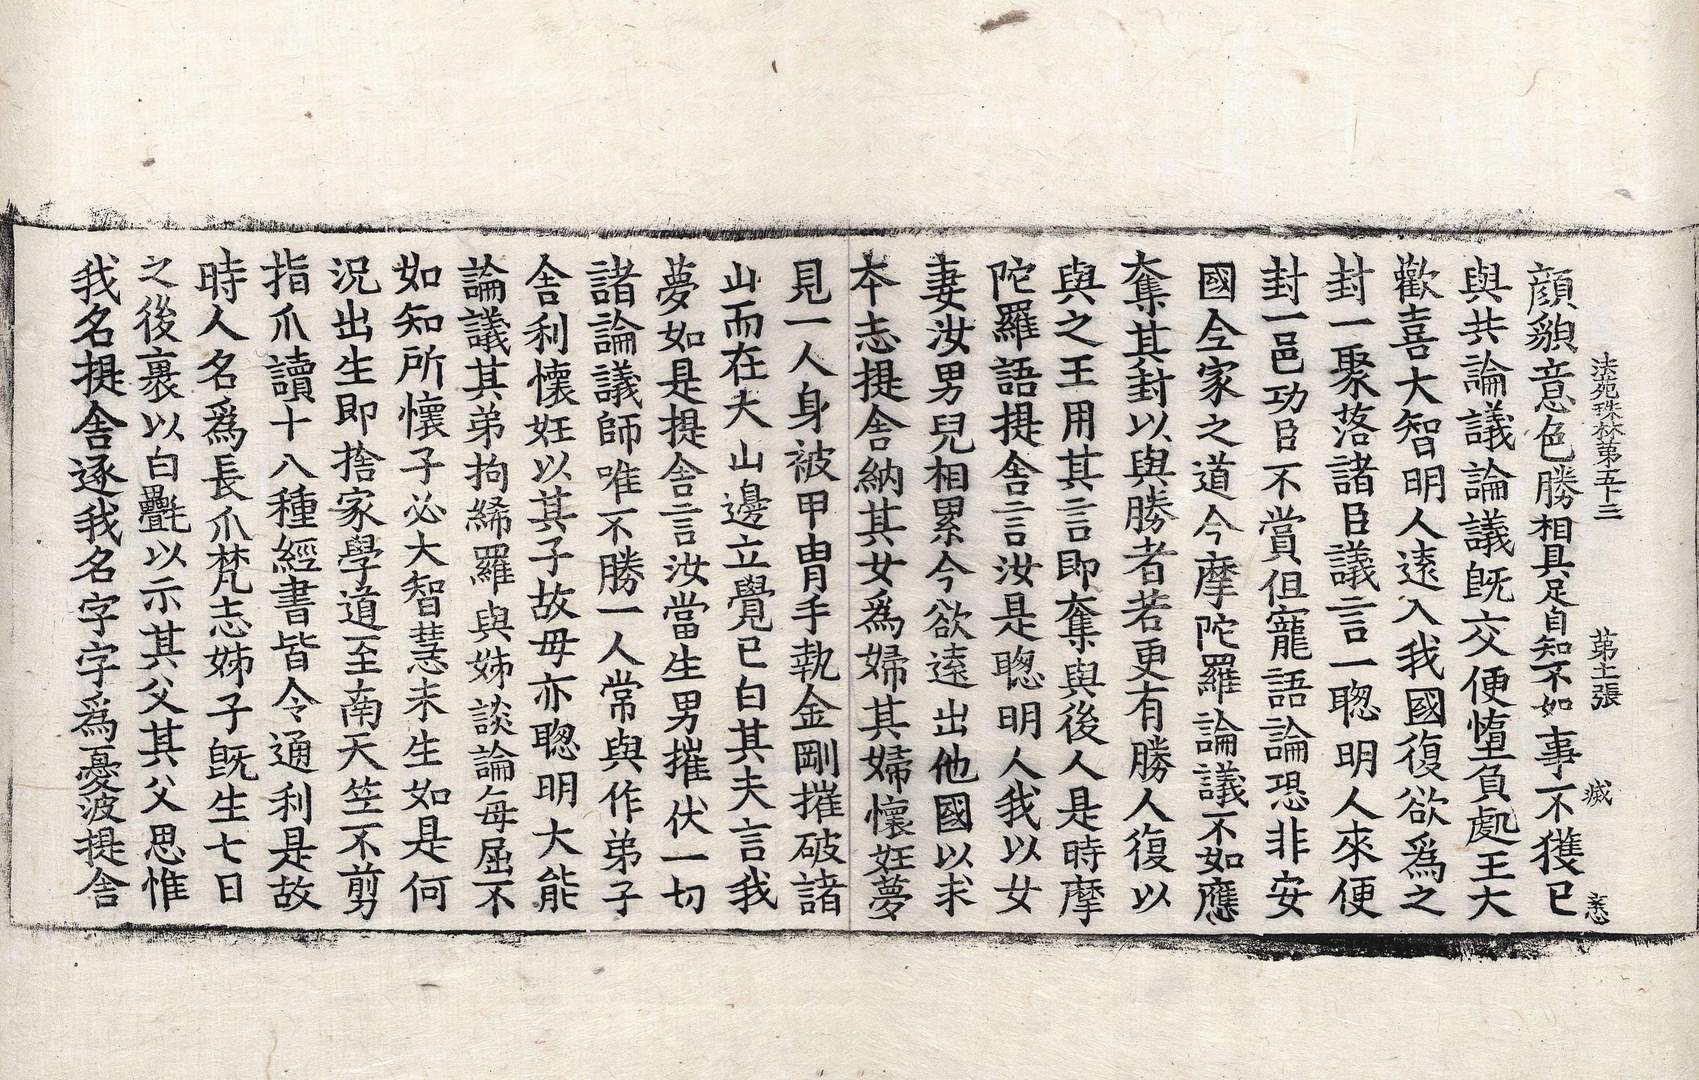 法苑珠林第五十三　第十二張
顔貌意色勝相具足自知不如事不獲已
與共論議論議旣交便墮負處王大
歡喜大智明人遠入我國復欲爲之
封一聚落諸臣議言一聰明人來便
封一邑功臣不賞但寵語論恐非安
國全家之道今摩陀羅論議不如應
奪其封以與勝者若更有勝人復以
與之王用其言即奪與後人是時摩
陀羅語提舍言汝是聰明人我以女
妻汝男兒相累今欲遠出他國以求
本志提舍納其女爲婦其婦懷妊夢
見一人身被甲冑手執金剛摧破諸
山而在大山邊立覺已白其夫言我
夢如是提舍言汝當生男摧伏一切
諸論議師唯不勝一人常與作弟子
舍利懷妊以其子故母亦聰明大能
論議其弟拘絺羅與姊談論每屈不
如知所懷子必大智慧未生如是何
況出生即捨家學道至南天竺不剪
指爪讀十八種經書皆令通利是故
時人名爲長爪梵志姊子旣生七日
之後裹以白㲲以示其父其父思惟
我名提舍逐我名字字爲憂波提舍